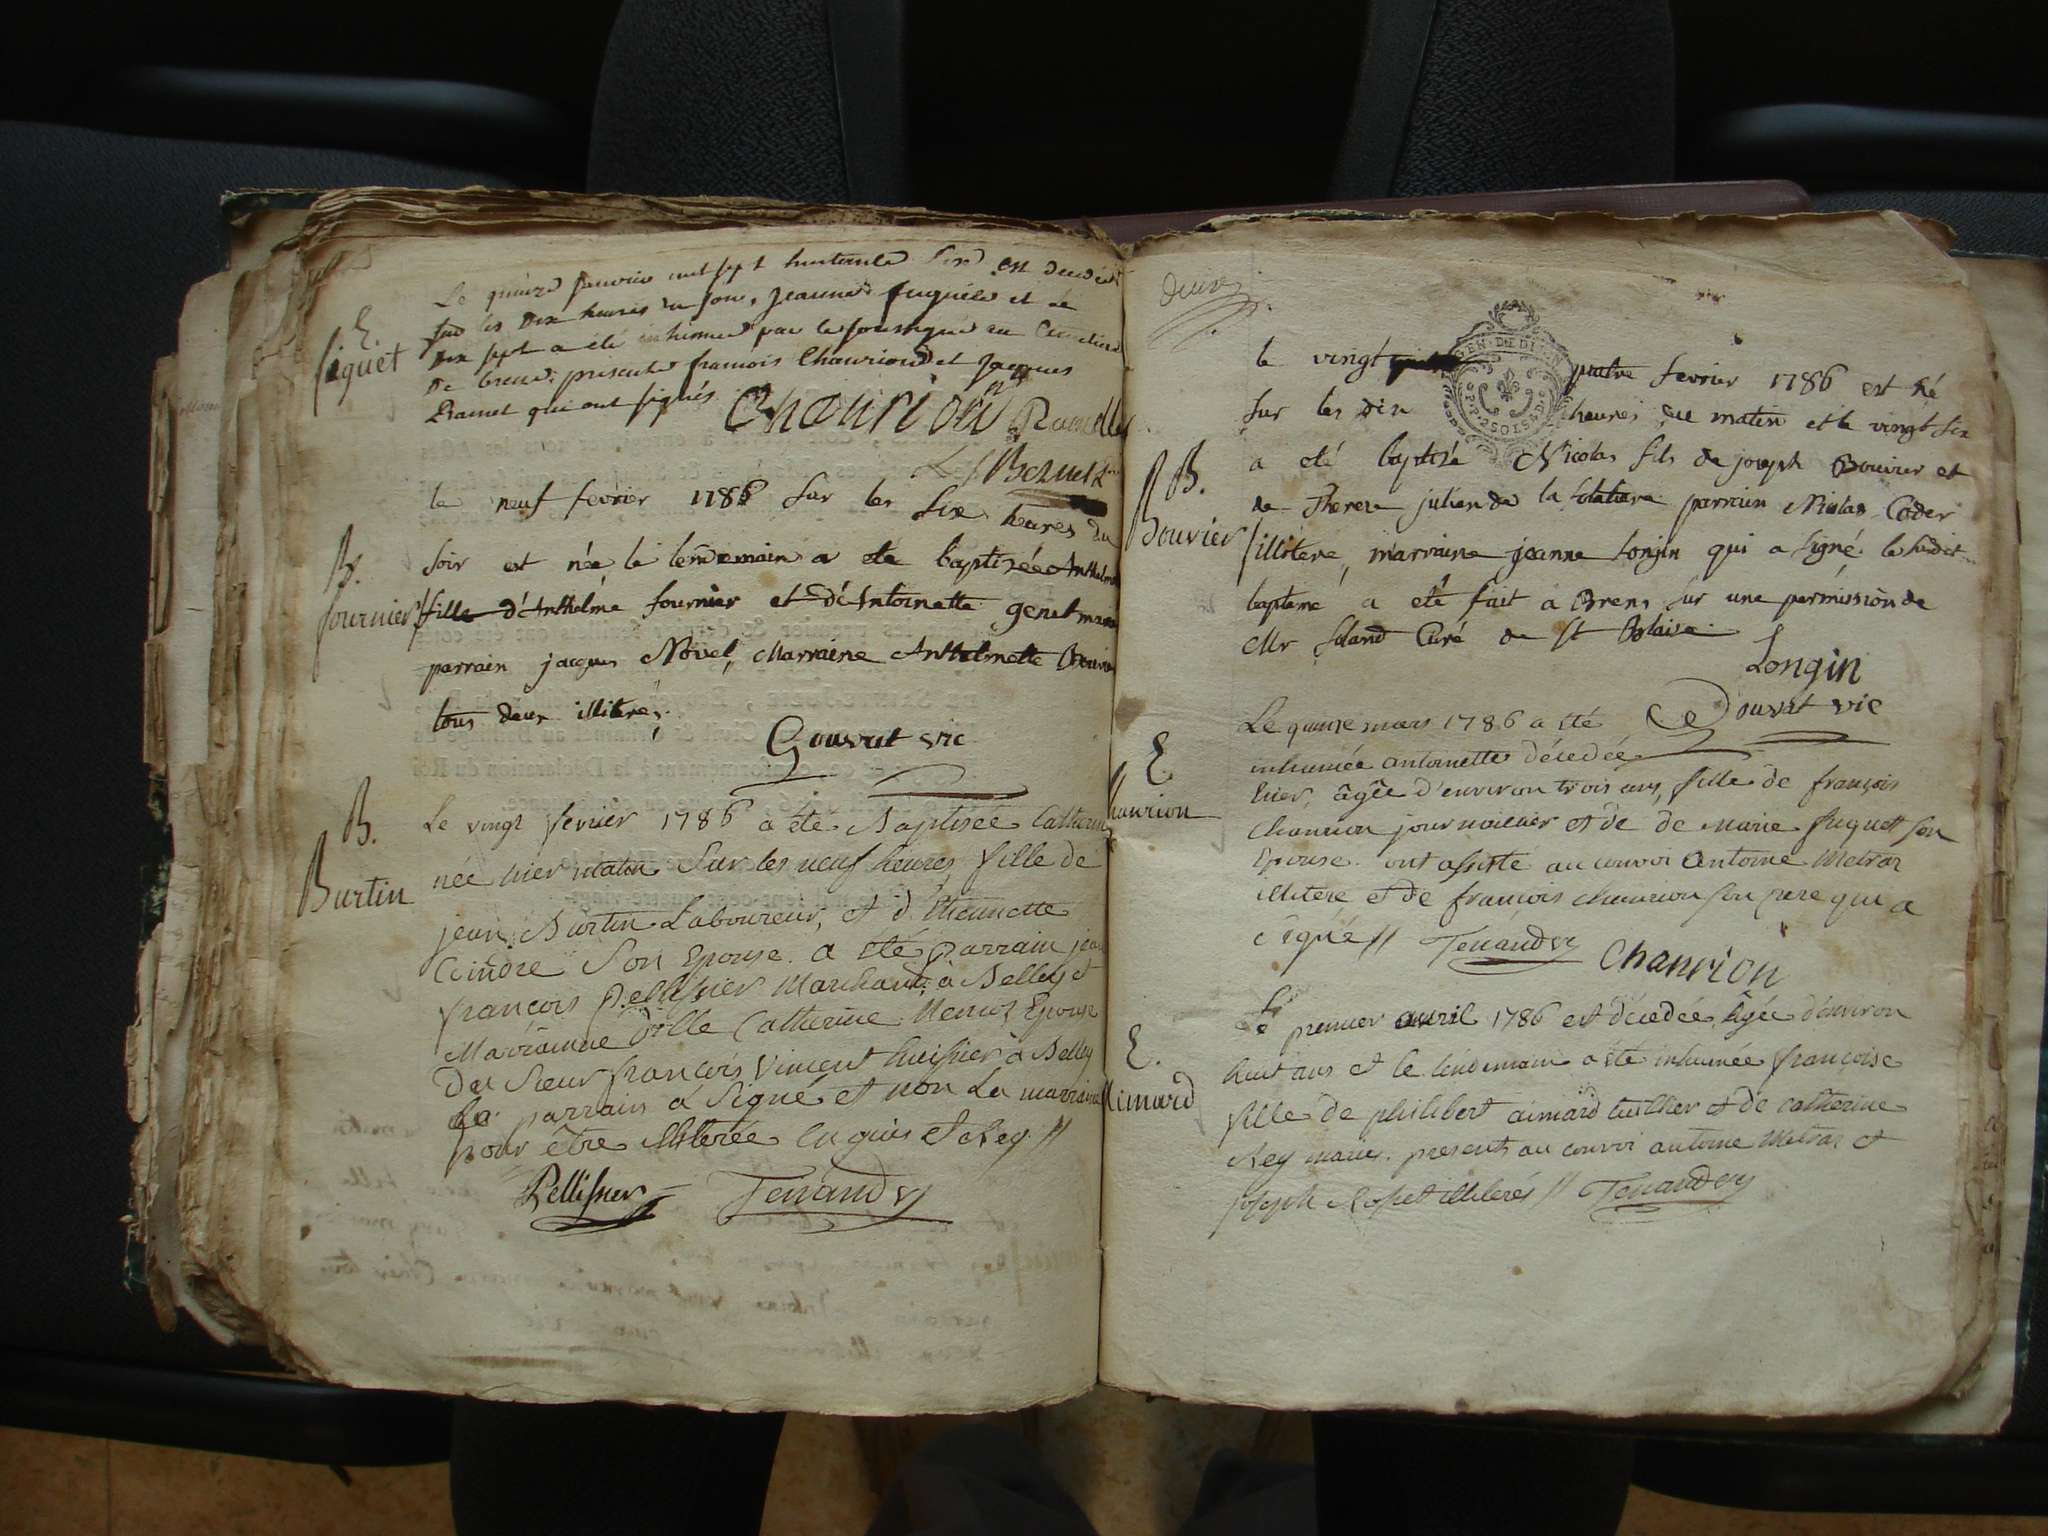 E.
fiquet
Le quinze janvier mil sept huitante six est decedée
sur les dix heures du soir, jeanne fuquet et le
dix sept a été inhumée par le soussigné au Cimetiere
de brens: presents francois Chanriond et Jacques
Ramel qui ont signés Chanrion Ramel
B.
fournier
le neuf fevrier 1786 sur les six heures du
soir est née le lendemain a eté baptisée Anthelme
fille d'Anthelme fournier et d'Antoinette genet mariés
parrain jacques Novel, Marraine Anthelmette Bouvier
tous deux illiterés,
Gouvat vic
B.
Burtin
Le vingt fevrier 1786 a été Baptisée Catherine
née hier matin sur les neuf heures, fille de
jean Burtin Laboureur, et d'Etiennette
Cindre son Epouse. a été parrain jean
françois Pellissier Marchand à Belley et
Marrainne Dlle Catherine Epouse
du Sieur françois Vincent huissier à Belley
Le parrain a signé et non la marraine
pour être illiterée enquis et Req //
Pellissier Tenand vy
le vingt quatre fevrier 1786 est né
sur les dix heures du matin et le vingt six
B.
Bouvier
a eté baptisé Nicolas fils de joseph Bouvier et
de Therese julien de la parrain Nicolas Coder
illitere, marraine jeanne Longin qui a signé le susdit
baptême a eté fait a Brens sur une permission de
Mr Curé de St Blaise.
Longin
Gouvat vic
E.
Chanrion
Le quinze mars 1786 a été
inhumée antoinette décedée
hier, âgée d'environ trois ans, fille de françois
chanrion journailier et de de Marie fuquet son
Epouse. ont assisté au convoi antoine Metraz
illitere et de françois chanrion son pere qui a
signé // Tenand vy Chanrion
E.
Aimard
Le premier avril 1786 est décedée, âgée d'environ
huit ans et le lendemain a été inhumée françoise
fille de philibert aimard tuillier et de catherine
Rey mariés. presents au convoi antoine Metraz et
joseph Rosset illiterés // Tenand vy
GEN. DE DIJON